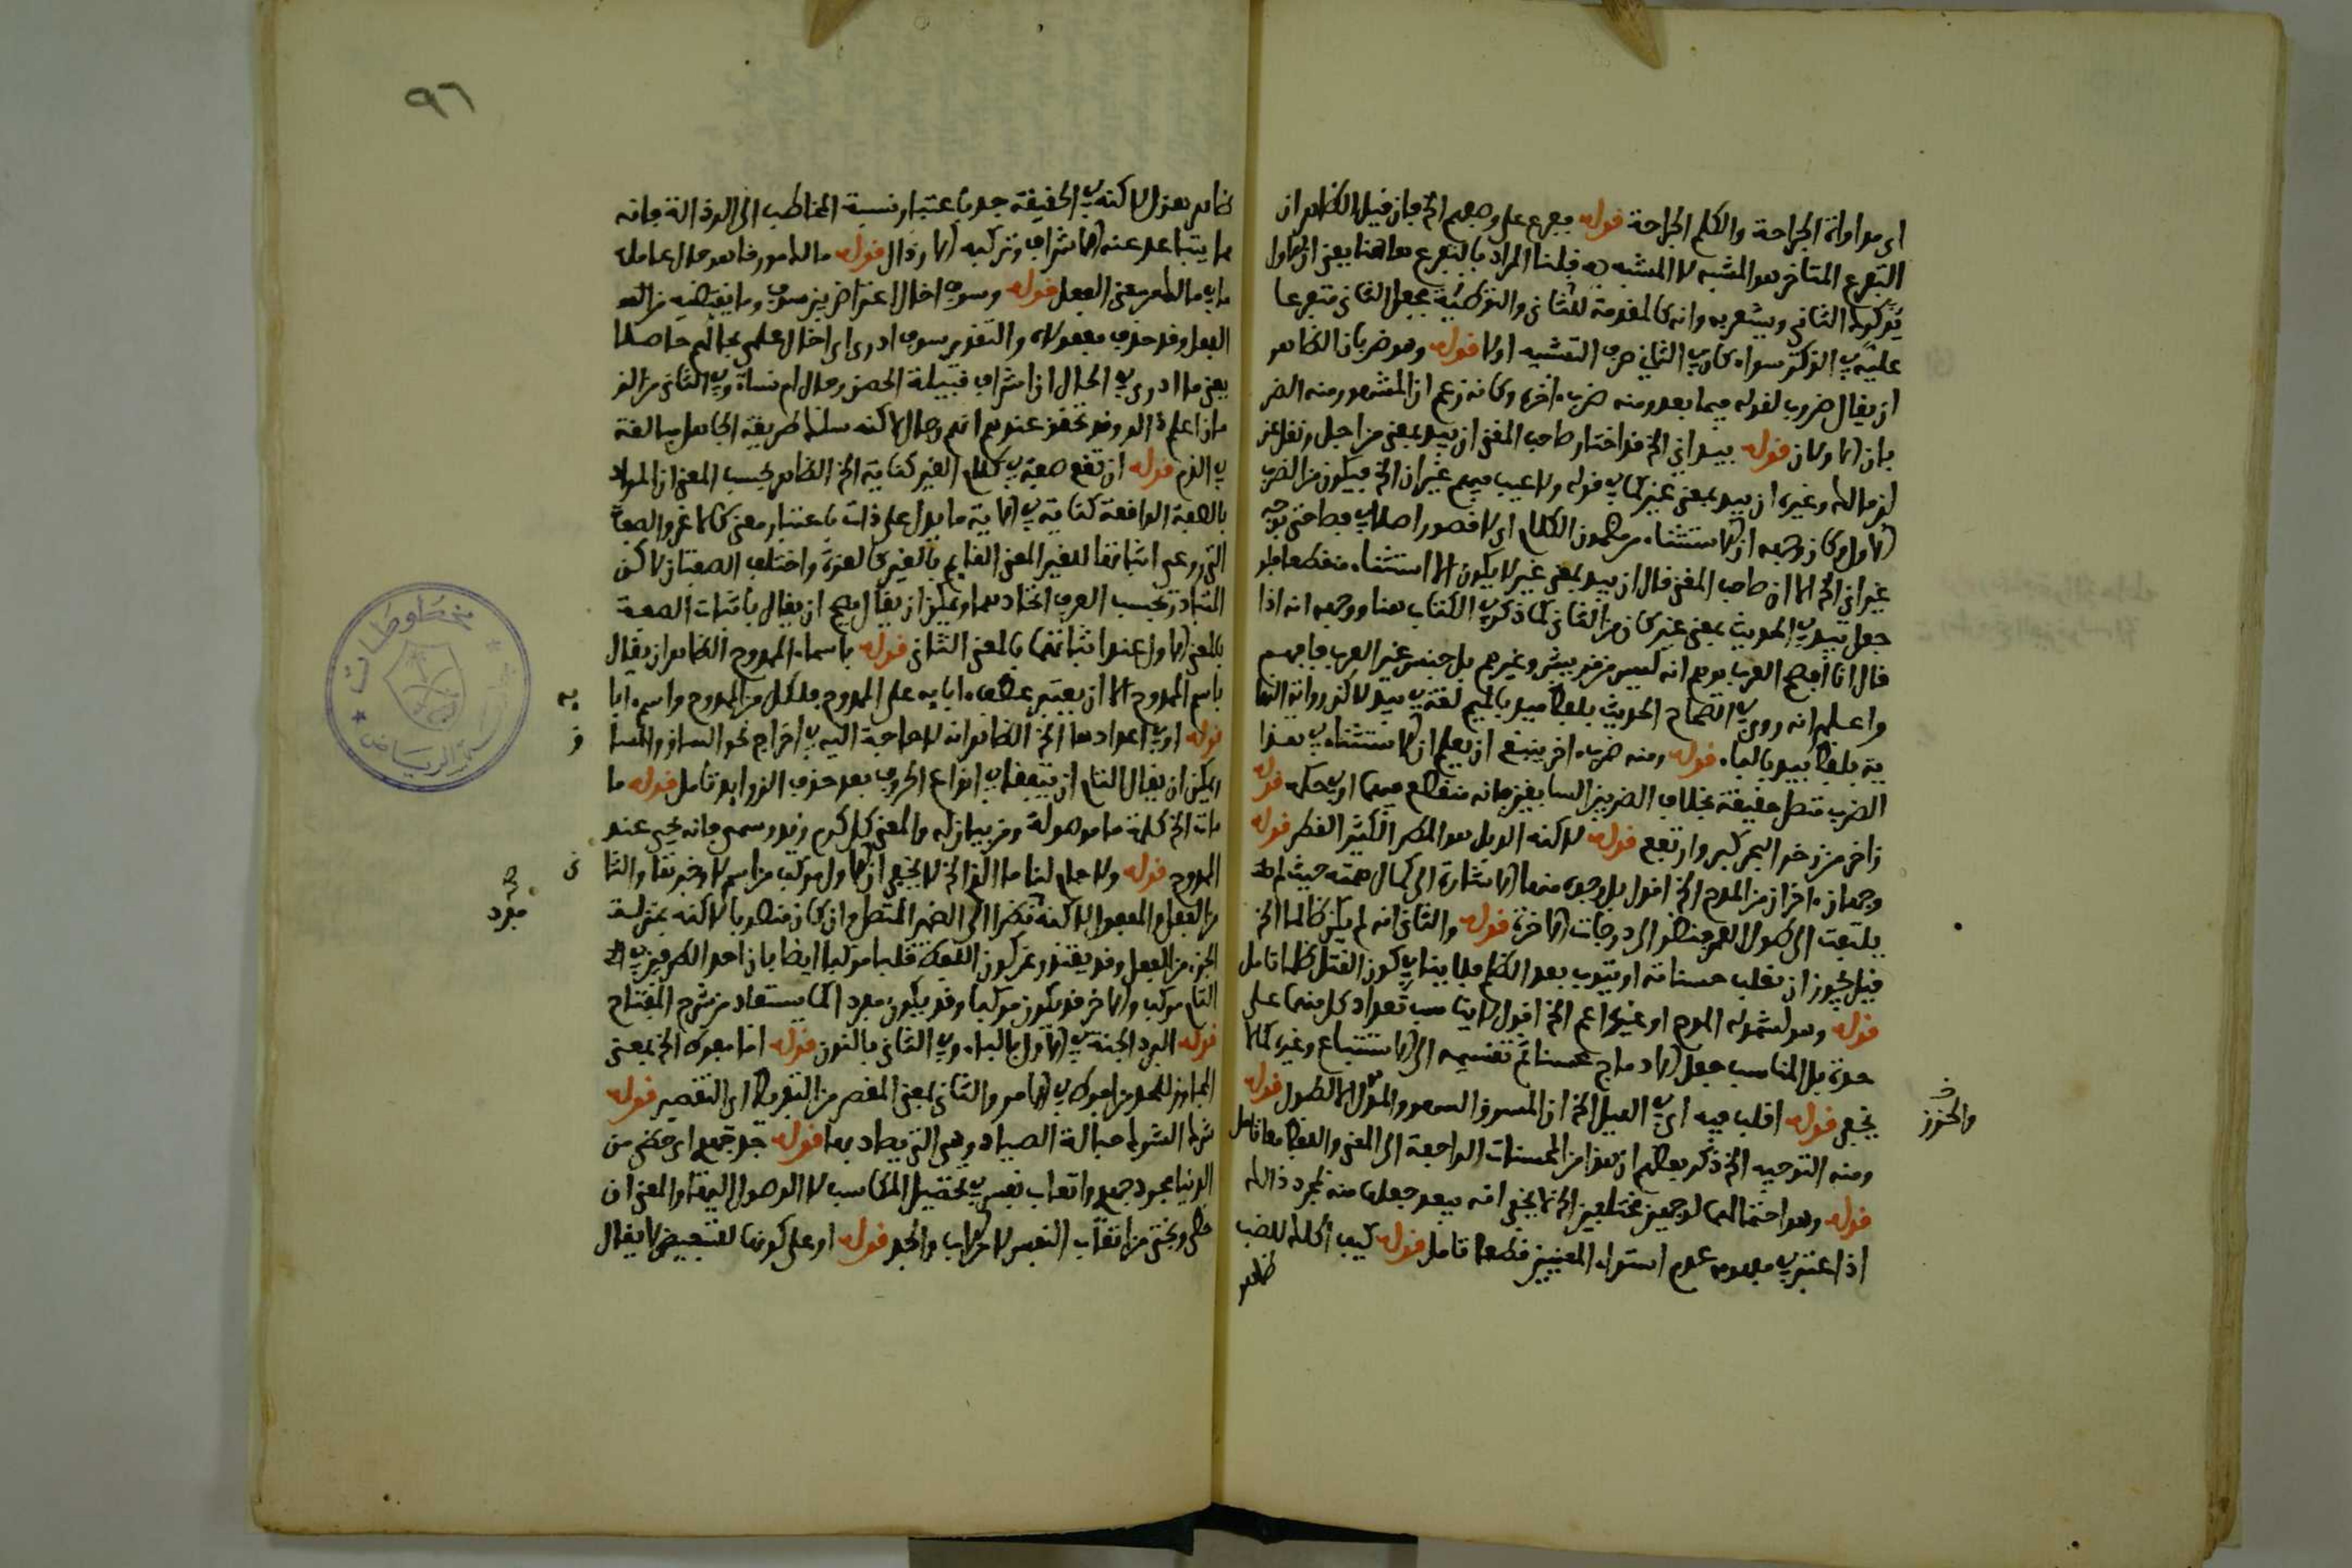 اى مداواة الجراحة والكلم الجراحة قوله ففرع على وصفهم الخ فان قيل الظاهر ان
التفرع المتاخر هو المشبه لا المشبه به قلنا المراد بالتفرع هاهنا يعنى ان الاول
يؤكد الثانى ويشعر به وانه كالمقدمة للثانى والتوطئة فجعل الثانى متفرعا
عليه فى الذكر سواء كان فى الثانى حرف التشبيه اولا قوله وهو ضربان الظاهر
ان يقال ضروب لقوله فيما بعد ومنه ضرب اخر وكانه زعم ان المشهور منه الضر
بان الاولان قوله بيد انى الخ قد اختار صاحب المغنى ان بيد بمعنى من اجل ونقل عن
ابن مالك وغيره ان بيد بمعنى غير كما فى قوله ولا عيب فيهم غير ان الخ فيكون من الضرب
الاول وكان وجهه ان الاستثناء من مضمون الكلام اى لا قصور اصلا فى فصاحتى بوجه
غير انى الخ الا ان صاحب المغنى قال ان بيد بمعنى غير لا يكون الا استثناء منقطعا فلو
جعل بيد فى الحديث بمعنى غير كان من الثانى كما ذكر فى الكتاب هنا ووجهه انه اذا
قال انا افصح العرب توهم انه ليس من قريش وغيرهم بل جنس غير العرب فافهم
واعلم انه روى فى الصحاح الحديث بلفظ ميد بالميم لغة فى بيد لا كن رواية النها
ية بلفظ بيد بالباء قوله ومنه ضرب اخر ينبغى ان يعلم ان الاستثناء فى هذا
الضرب متصل حقيقة بخلاف الضربين السابقين فانه منقطع فيهما او فى حكمه قوله
زاخر من زخر البحر كبر وارتفع قوله لا كنه الوبل هو المطر الكثير القطر قوله
وجهان اخران من المدح الخ اقول بل وجوه منها الاشارة الى كمال همته حيث لم
يلتفت الى طول العمر فنظر الى درجات الاخرة قوله والثانى انه لم يكن ظالما الخ
قيل يجوز ان تغلب حسناته او يتوب بعد الظلم فلا ينافى كون القتل ظلما تامل
قوله وهو لشموله المدح او غيره اعم الخ اقول لا يناسب تعداد كل منهما على
حدة بل المناسب جعل الادماج محسنا ثم تقسيمه الى الاستتباع وغيره كما لا
يخفى قوله اقلب فيه اى فى الليل الخ ان المسوق السهر والمؤل الا الطول قوله
ومنه التوجيه الخ ذكر بعضهم ان هذا من المحسنات الراجعة الى المعنى واللفظ معا تامل
قوله وهو احتمالهما لوجهين مختلفين الخ لا يخفى انه يبعد جعلها منه لمجرد ذالك
اذا اعتبر فى مفهومه عدم استواء المعنيين قطعا تامل قوله كيف اكلك للضب
ظاهر
والحذر
٩٦
ظاهره هزل لا كنه فى الحقيقة جد باعتبار نسبة المخاطب الى الرذالة فانه
ما يتباعد عنه الاشراف وتركبه الارذال قوله
ما فى ما الظهر معنى الفعل قوله وسوف اخال اعتراض بين سوف وما يقتضيه من
الفعل وقد حذف مفعولاه والتقدير سوف ادرى اى اخال علمى بحالهم حاصلا
يعنى ما ادرى فى الحال ان اشراف قبيلة الحصن رجال ام نساء وفى الثانى من
ماذا علم وقد تحقق عندهم انهم رجال لا كنه سلك طريقة الجاهل مبالغة
فى الذم قوله ان تقع صفة فى كلام الغير كناية الخ الظاهر بحسب المعنى ان المراد
بالصفة الواقعة كناية فى الاية ما يدل على ذات باعتبار معنى كالاعز والصفة
التى روعى اثباتها للغير المعنى القايم بالغير كالعزة واختلفت الصفتان لا كن
المتبادر بحسب العرف اتحادهما ويمكن ان يقال يصح ان يقال باثبات الصفة
بالمعنى الاول عند اثباتها بالمعنى الثانى قوله باسماء الممدوح الظاهر ان يقال
باسم الممدوح الا ان يعتبر عطف ابايه على الممدوح فلكل من الممدوح واسم ابا يه
قوله او فى اعدادها الخ الظاهر انه لا حاجة اليه فى اخراج نحو الساق والمسا ق
ويمكن ان يقال التام ان يتفقا فى انواع الحروف بعد حذف الزوايد تامل قوله ما
مات الخ كلمة ما موصولة ومن بيان له والمعنى كل كرم زيد وسمى فانه يحيى عند
الممدوح قوله ولا جام لنا ما الذى الخ لا يخفى ان الاول مركب من اسم لا وخبرها والثا نى
من الفعل والمفعول لا كنه نظرا الى الضمير المتصل وان كان منصوبا لا كنه بمنزلة
الجزء من الفعل وقد يعتذر عن كون اللفظ قلبا مركبا ايضا بان احد اللفظين فى
التام مركب والاخر قد يكون مركبا وقد يكون مفردا كما يستفاد من شرح المفتاح
قوله البرد الجنة فى الاول بالباء وفى الثانى بالنون قوله اما مفرط الخ بمعنى
المجاوز للحد من افرط فى الامر والثانى بمعنى المقصر من التفريط اى التقصير قوله
شرك الشرك حبالة الصياد وهى التى يصاد بها قوله جد جهد اى حظى من
الدنيا مجرد جهد واتعاب نفسى فى تحصيل المكاسب لا الوصول اليها والمعنى ان
حظى وبختى من اتعاب النفس لا والجد قوله او على كونها للتبعيض لا يقال
صح مفرد
مخطوطات
الرياض